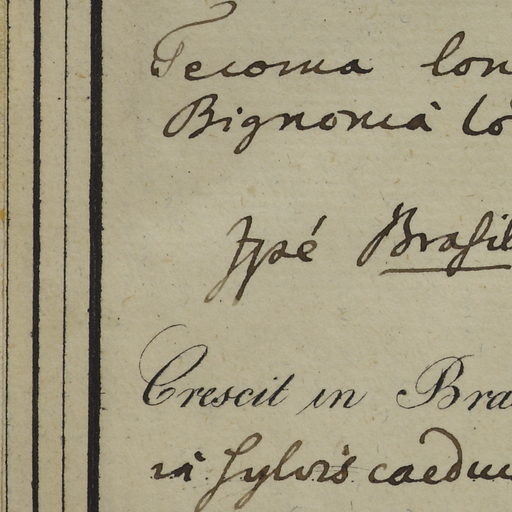 Tecoma lon
Bignonia lo
Ipé Brasil
Crescit in Bra
in sylvis caedu